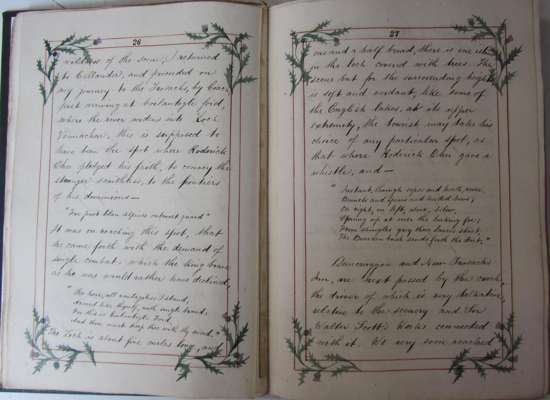 26
wildness of the scene, I returned
to Callander, and proceeded on
my journey to the Trosachs, by Coac,
first arriving at Coilantogle ford,
where the river widens into Loch
Vennachar; this is supposed to
have been the spot where Roderick
Dhu pledged his faith, to convey the
stranger scathless, to the frontiers
of his dominions —
"Far past Clan Alpine's outmost guard"
It was on reaching this spot, that
he came forth with the demand of
single combat, which the king bade
as he was would rather have declined,
"See here, all vantageless I stand,
Armed like thyself, with single brand.
For this is Coilantogle Ford,
And thou must keep thee with thy sword."
The Loch is about five miles long, and
27
one and a half broad, there is one isle
in the loch covered with trees. The
scene but for the surrounding heights
is soft and verdant, like some of
the English lakes, at its upper
extremity, the tourist may take his
choice of any particular spot, as
that where Roderick Dhu gave a
whistle, and —
"Instant, through copse and heath, arose,
Bonnets and spears and bended bows;
On right, on left, above, below,
Sprung up at once the lurking foe;
From shingles grey their lances start,
The Bracken bush sends forth the dart,"
and New Trosachs
Inn, are next passed by the coach,
the driver of which is very talkative,
relative to the scenery and Sir
Walter Scott's Works connected
with it. We very soon reached